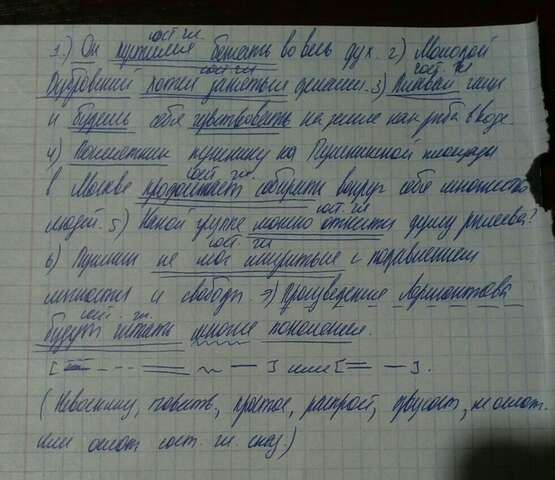 сост. гл.
1.) Он пустился бежать во весь дух. 2) Молодой
сост. гл. сост. гл.
Дубровский хотел заняться делами. 3) Плавай чаще
и будешь себя чувствовать на земле как рыба в воде.
4) Памятник Пушкину на Пушкинской площади
сост. гл.
в Москве продолжает собирать вокруг себя множество
сост. гл.
людей. 5) Какой группе можно отнести думу Рылеева?
сост. гл.
6) Пушкин не мог мириться с подавлением
личности и свободы. 7) Произведения Лермонтова
сост. гл.
будут читать многие поколения.
[ = - - - = ~ — ] или [ = — ].
(Невосклиц, повеств, простое, распрост, двусост, не ослож.
или ослож сост. гл. сказ)